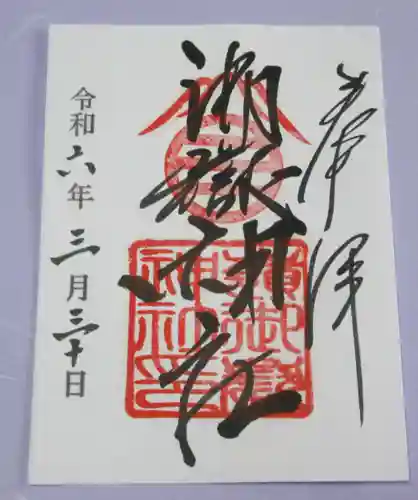 奉拝
御嶽神社
令和六年三月三十日